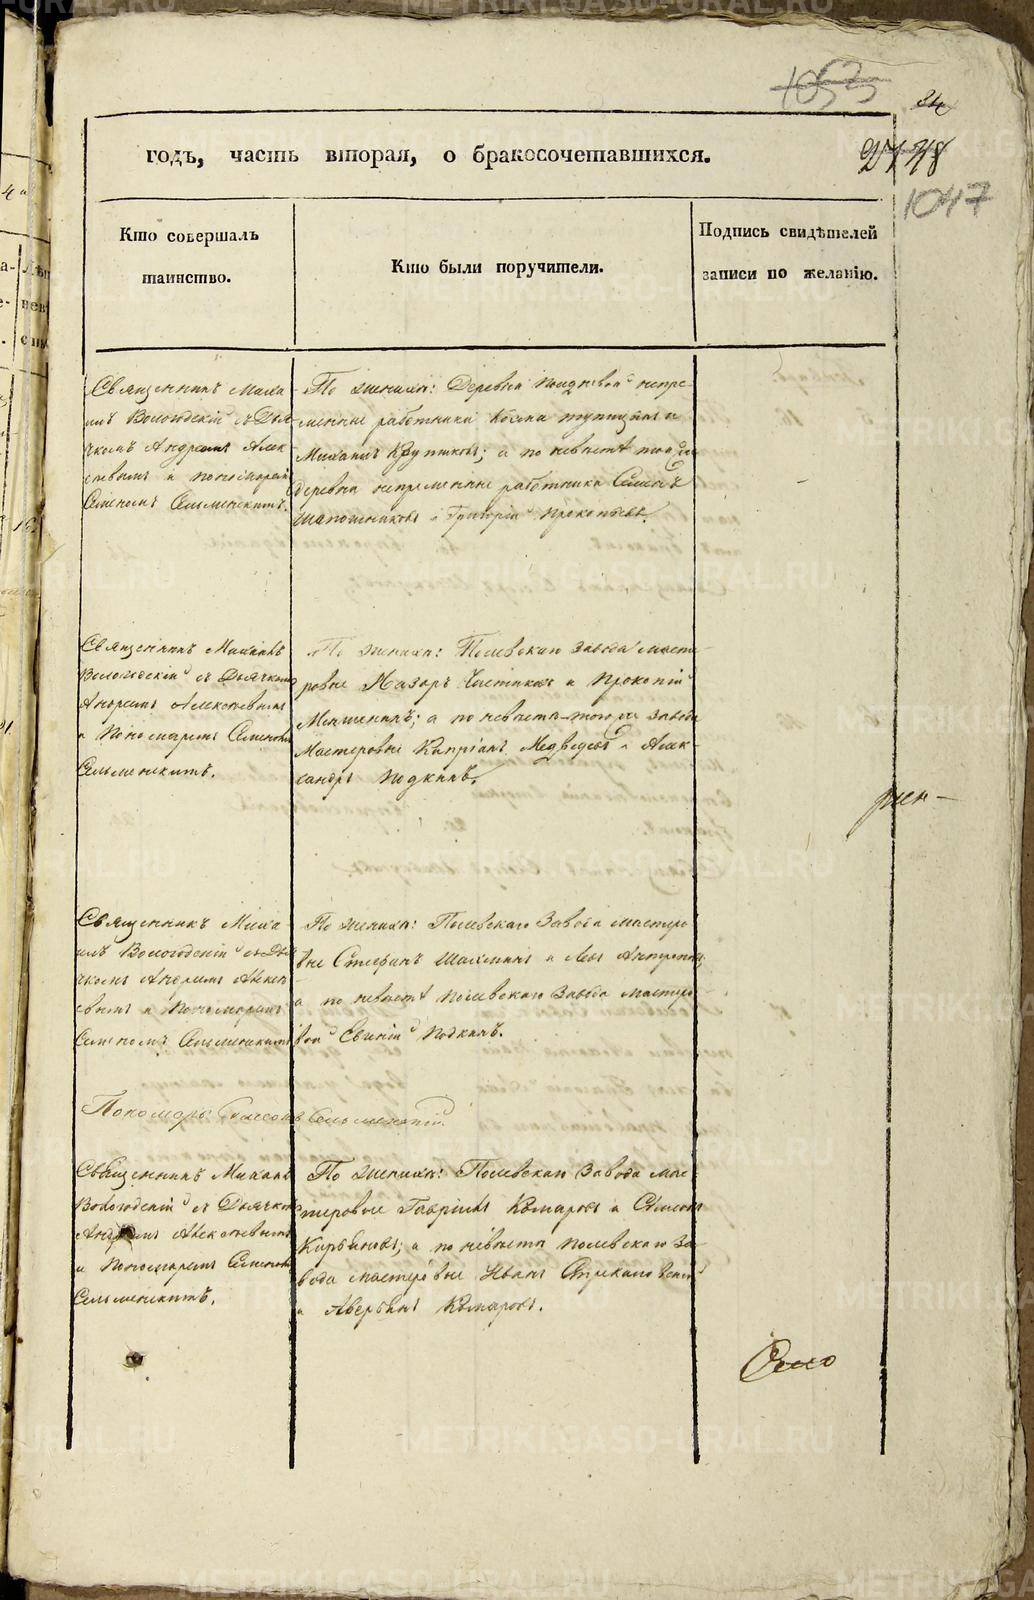 1055
34
годъ, часть вторая, о бракосочетавшихся.
1047
Кто совершалъ
таинство.
Кто были поручители.
Подпись свидѣтелей
записи по желанію.
Священникъ Миха
илъ Вологодскій съ Дья
чкомъ Андреемъ Алек
сеевымъ и пономаремъ
Семеномъ Сельменскимъ.
По женихѣ: Деревни непре
менные работники Козма и
Михаилъ Крутиковъ; а по невестѣ тойже
деревни непременные работники Семенъ
Шапошниковъ и Григорій Прокопьевъ.
Священникъ Михаилъ
Вологодскій съ Дьячкомъ
Андреемъ Алексеевымъ
и Пономаремъ Семеномъ
Сельменскимъ.
По женихѣ: Полевскаго завода масте
ровые Назаръ Чистяковъ и Прокопій
а по невѣсте того же завода
Мастеровые Кипріянъ Медведевъ и Алек
сандръ Подкинъ.
Священникъ Миха
илъ Вологодскій съ Дья
чкомъ Андреемъ Алексе
евымъ и Пономаремъ
Семеномъ Сельменскимъ
По женихѣ: Полевскаго Завода мастеро
вые Стефанъ Шахминъ и Левъ
а по невестѣ Полевскаго Завода мастеро
вой Подкинъ.
Пономарь Симеонъ Сельменскій
Священникъ Михаилъ
Вологодскій съ Дьячкомъ
Андреемъ Алексеевымъ
и Пономаремъ Семеномъ
Сельменскимъ.
По женихѣ: Полевскаго Завода мас
теровые Гавріилъ Комаровъ и Симеонъ
Кирьяновъ; а по невѣсте полевскаго За
вода мастеровые Иванъ
и Аверьянъ Комаровъ.
METRIKI.GASO-URAL.RU